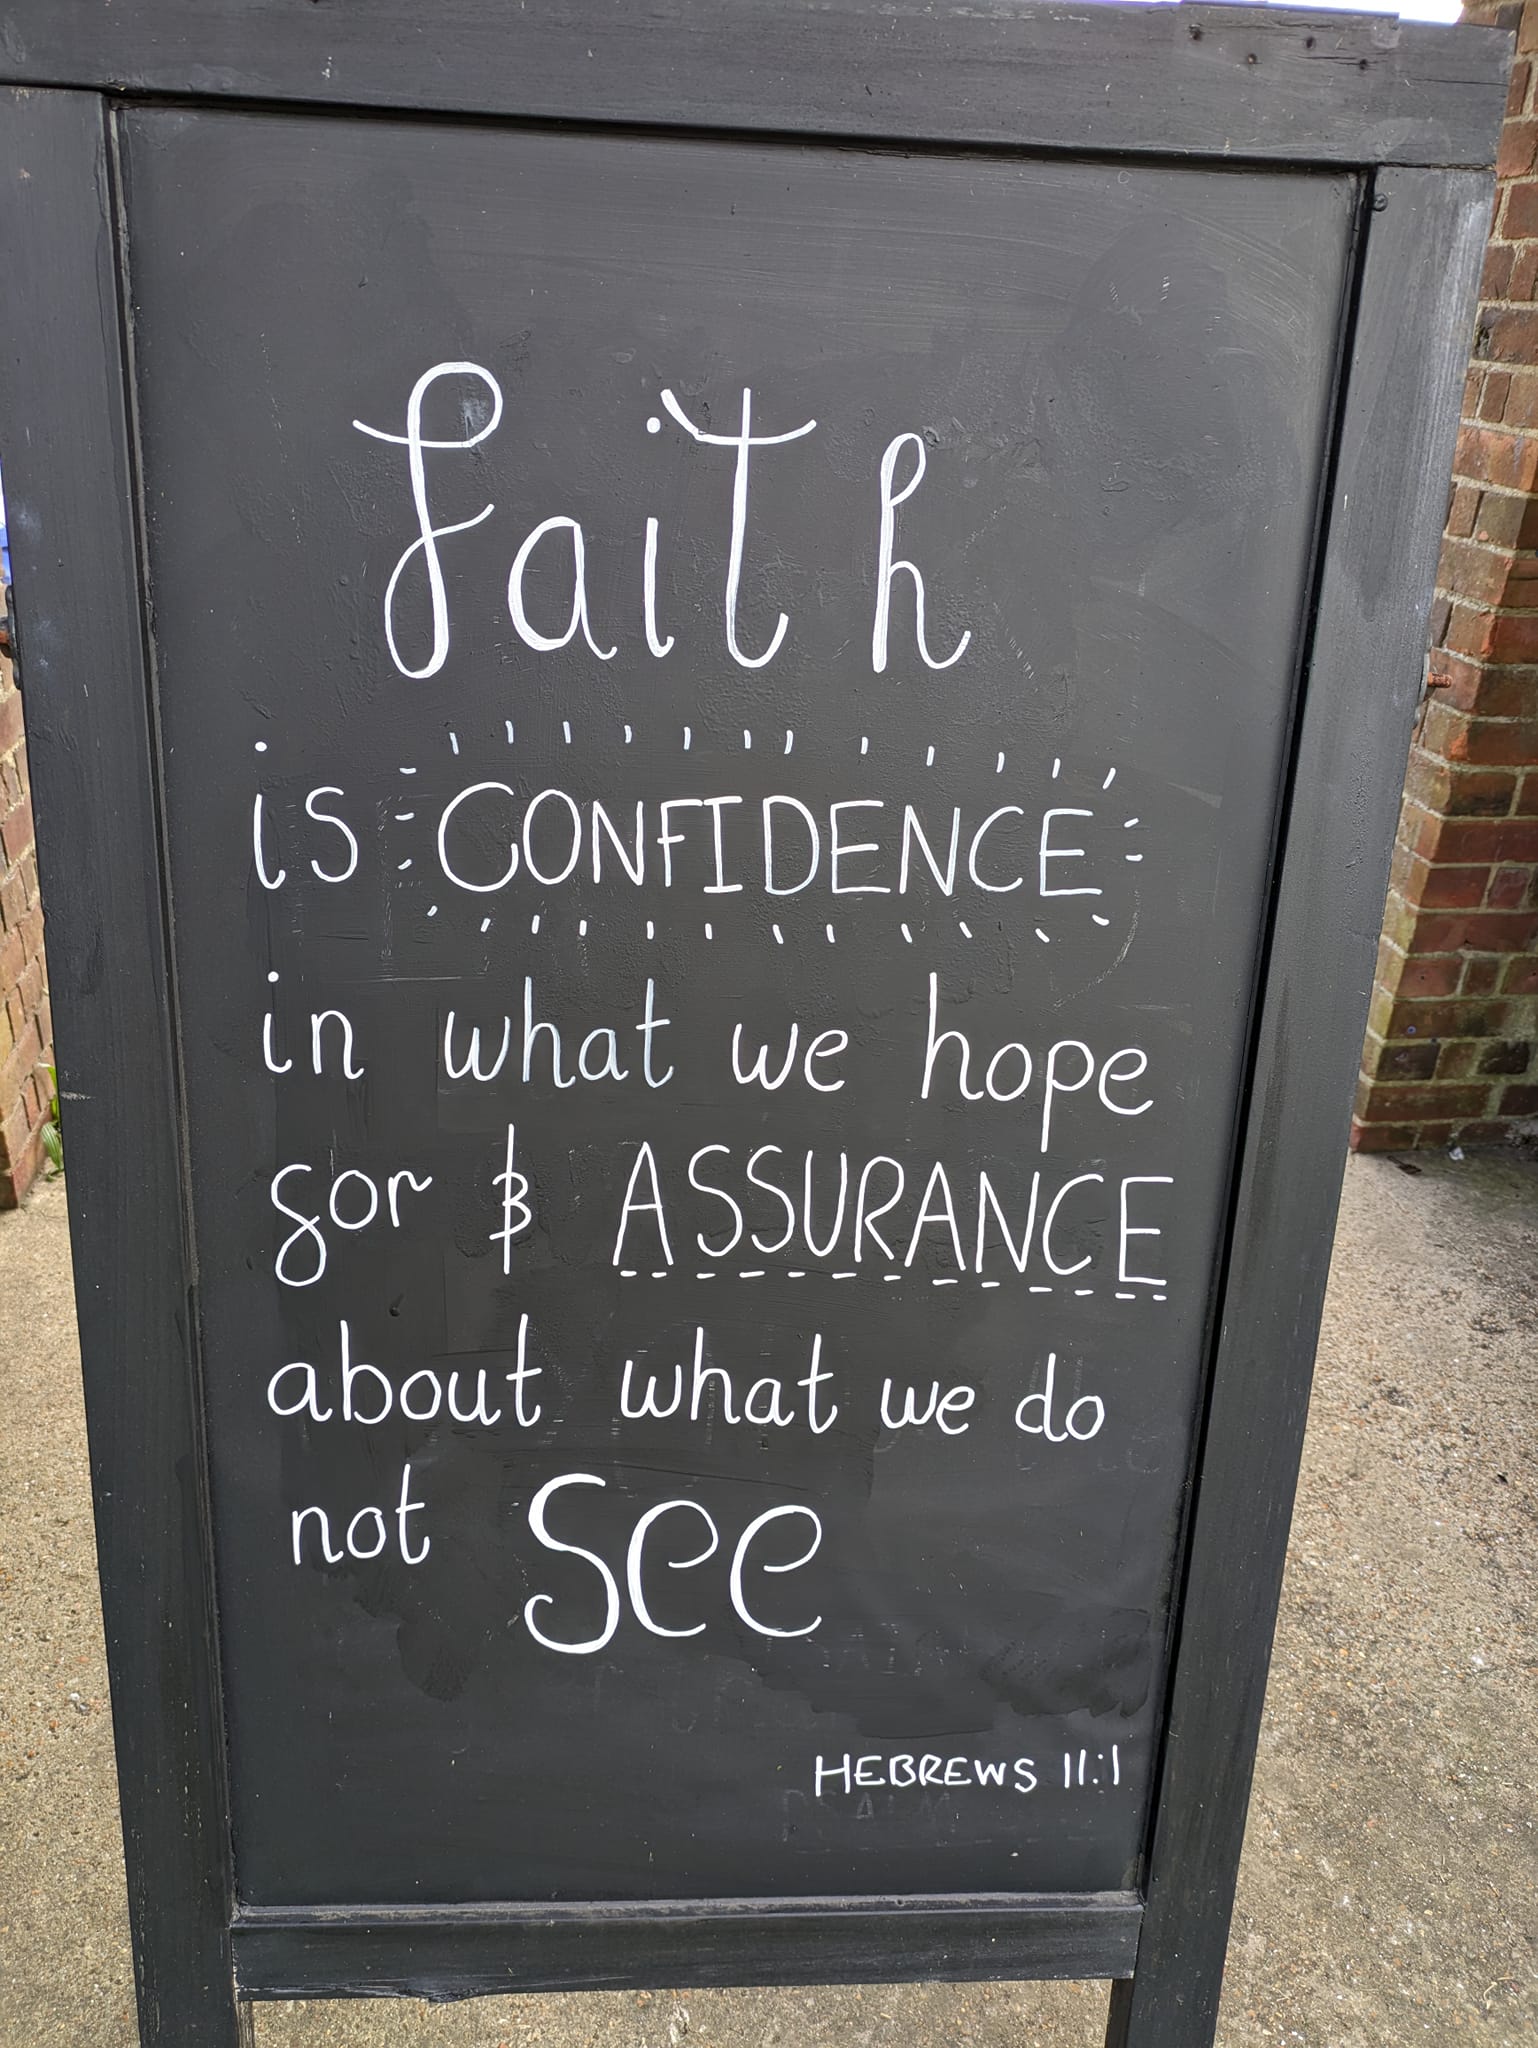 faith
is CONFIDENCE
in what we hope
for & ASSURANCE
about what we do
not see
HEBREWS 11:1